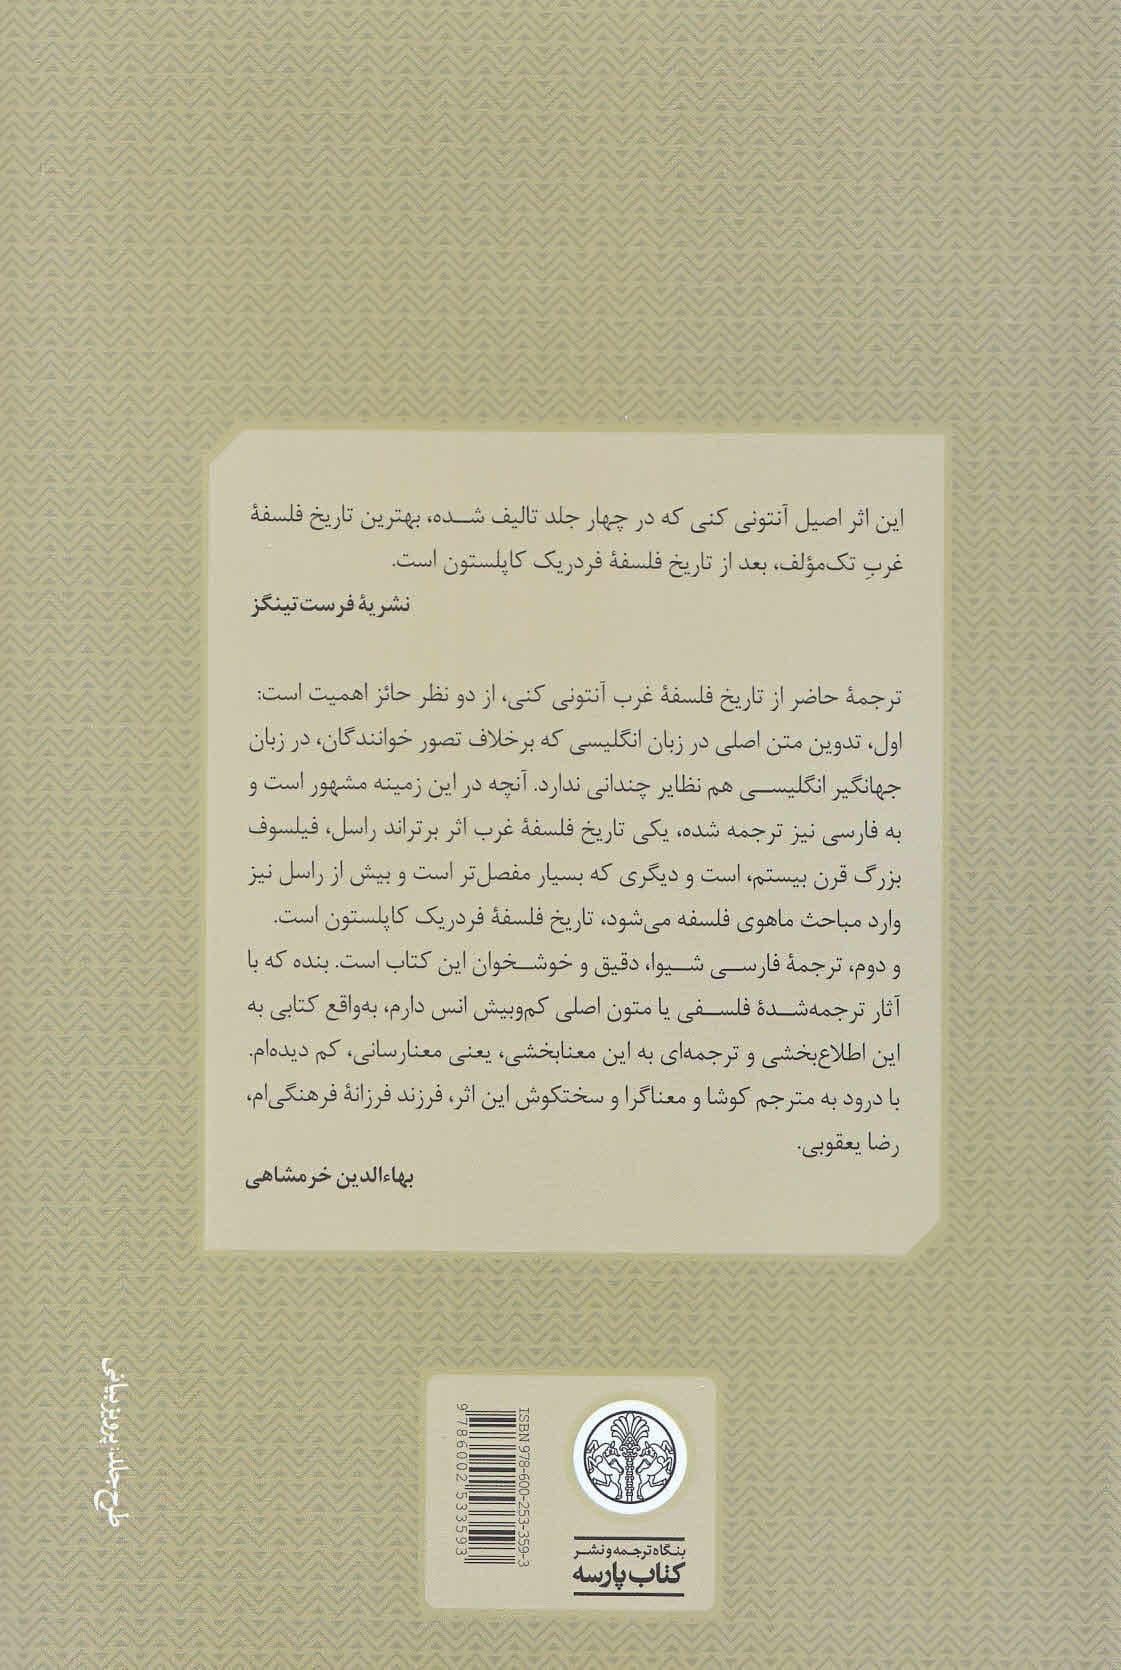 این اثر اصیل آنتونی کنی که در چهار جلد تالیف شده، بهترین تاریخ فلسفهٔ
غربِ تک‌مؤلف، بعد از تاریخ فلسفهٔ فردریک کاپلستون است.
نشریهٔ فرست تینگز
ترجمهٔ حاضر از تاریخ فلسفهٔ غرب آنتونی کنی، از دو نظر حائز اهمیت است:
اول، تدوین متن اصلی در زبان انگلیسی که برخلاف تصور خوانندگان، در زبان
جهانگیر انگلیسی هم نظایر چندانی ندارد. آنچه در این زمینه مشهور است و
به فارسی نیز ترجمه شده، یکی تاریخ فلسفهٔ غرب اثر برتراند راسل، فیلسوف
بزرگ قرن بیستم، است و دیگری که بسیار مفصل‌تر است و بیش از راسل نیز
وارد مباحث ماهوی فلسفه می‌شود، تاریخ فلسفهٔ فردریک کاپلستون است.
و دوم، ترجمهٔ فارسی شیوا، دقیق و خوشخوان این کتاب است. بنده که با
آثار ترجمه‌شدهٔ فلسفی یا متون اصلی کم‌وبیش انس دارم، به‌واقع کتابی به
این اطلاع‌بخشی و ترجمه‌ای به این معنابخشی، یعنی معنارسانی، کم دیده‌ام.
با درود به مترجم کوشا و معناگرا و سختکوش این اثر، فرزند فرزانهٔ فرهنگی‌ام،
رضا یعقوبی.
بهاءالدین خرمشاهی
بنگاه ترجمه و نشر
کتاب پارسه
ISBN 978-600-253-359-3
9 786002 533593
طرح جلد: پرویز بیانی